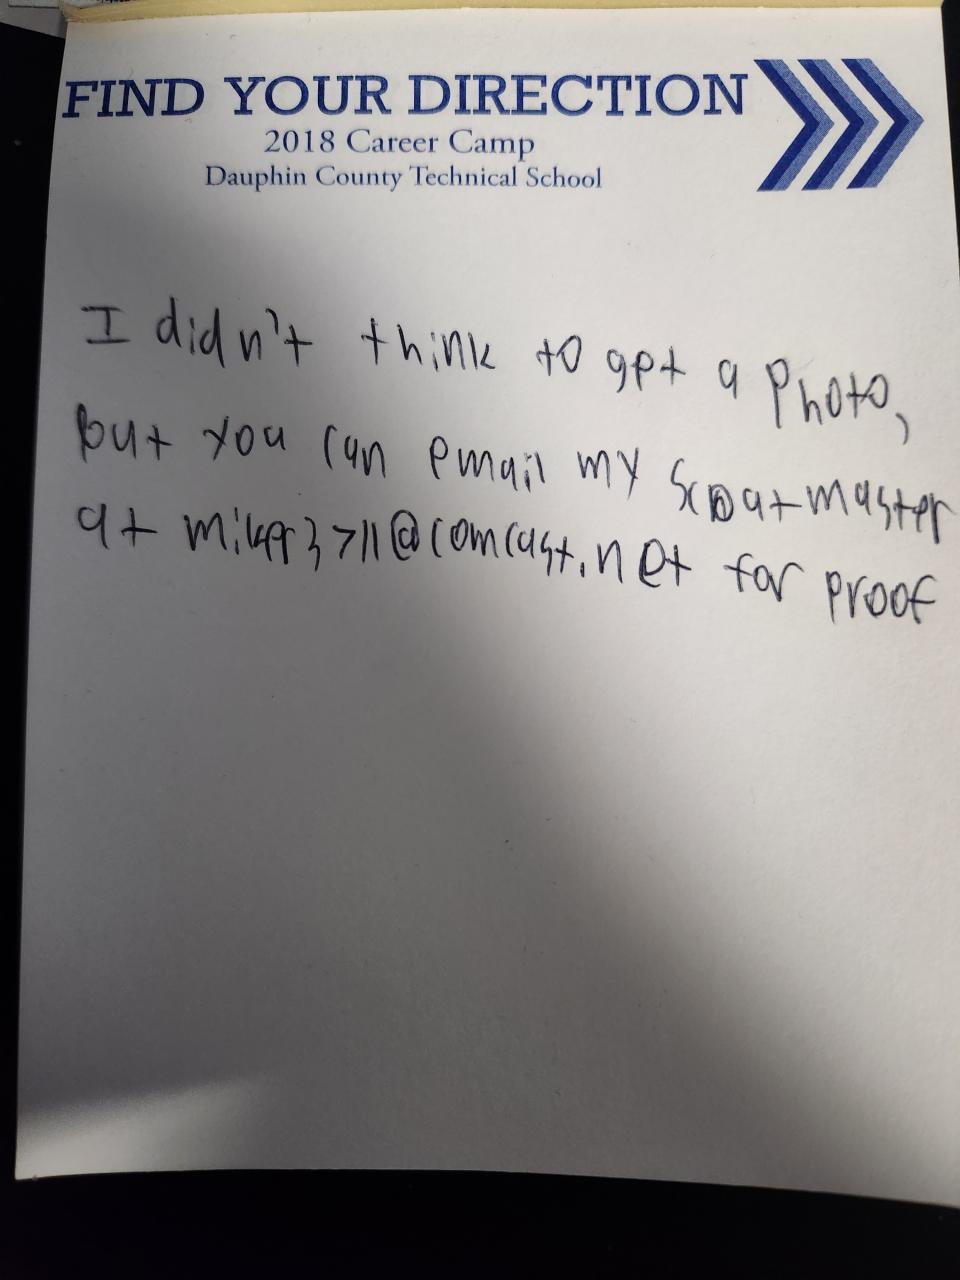 FIND YOUR DIRECTION
2018 Career Camp
Dauphin County Technical School
I didn't think to get a photo,
but you can email my scoutmaster
at @comcast.net for proof